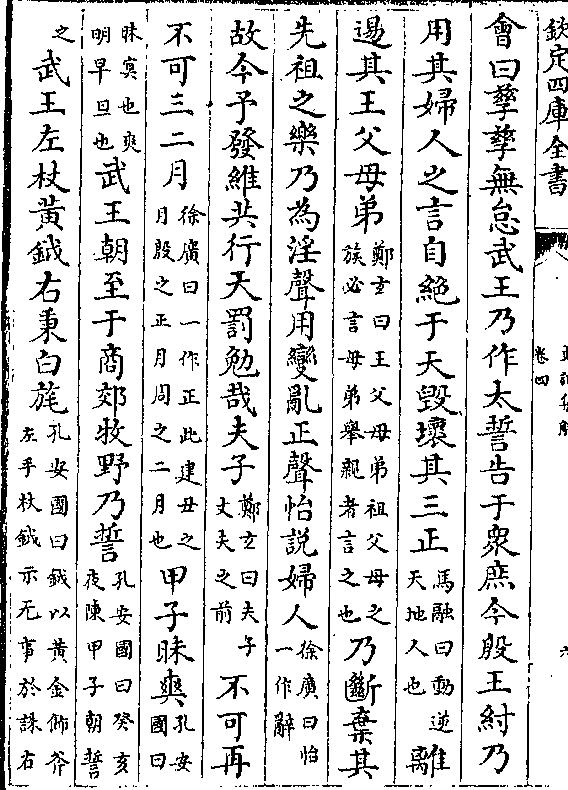 欽定四庫全書
卷四
會曰孳孳無怠武王乃作太誓告于衆庶今殷王紂乃
用其婦人之言自絶于天毁壞其三正馬融曰動逆天地人也離
逷其王父母弟鄭𤣥曰王父母弟祖父母之族必言母弟舉親者言之也乃斷棄其
先祖之樂乃為淫聲用變亂正聲怡説婦人徐廣曰怡一作辭
故今予發維共行天罰勉哉夫子鄭𤣥曰夫子丈夫之前不可再
不可三二月徐廣曰一作正此建丑之月殷之正月周之二月也甲子昧爽孔安國曰
昧㝠也爽明早旦也武王朝至于商郊牧野乃誓孔安國曰癸亥夜陳甲子朝誓
之武王左杖黄鉞右秉白旄孔安國曰鉞以黄金飾斧左手杖鉞示无事於誅右